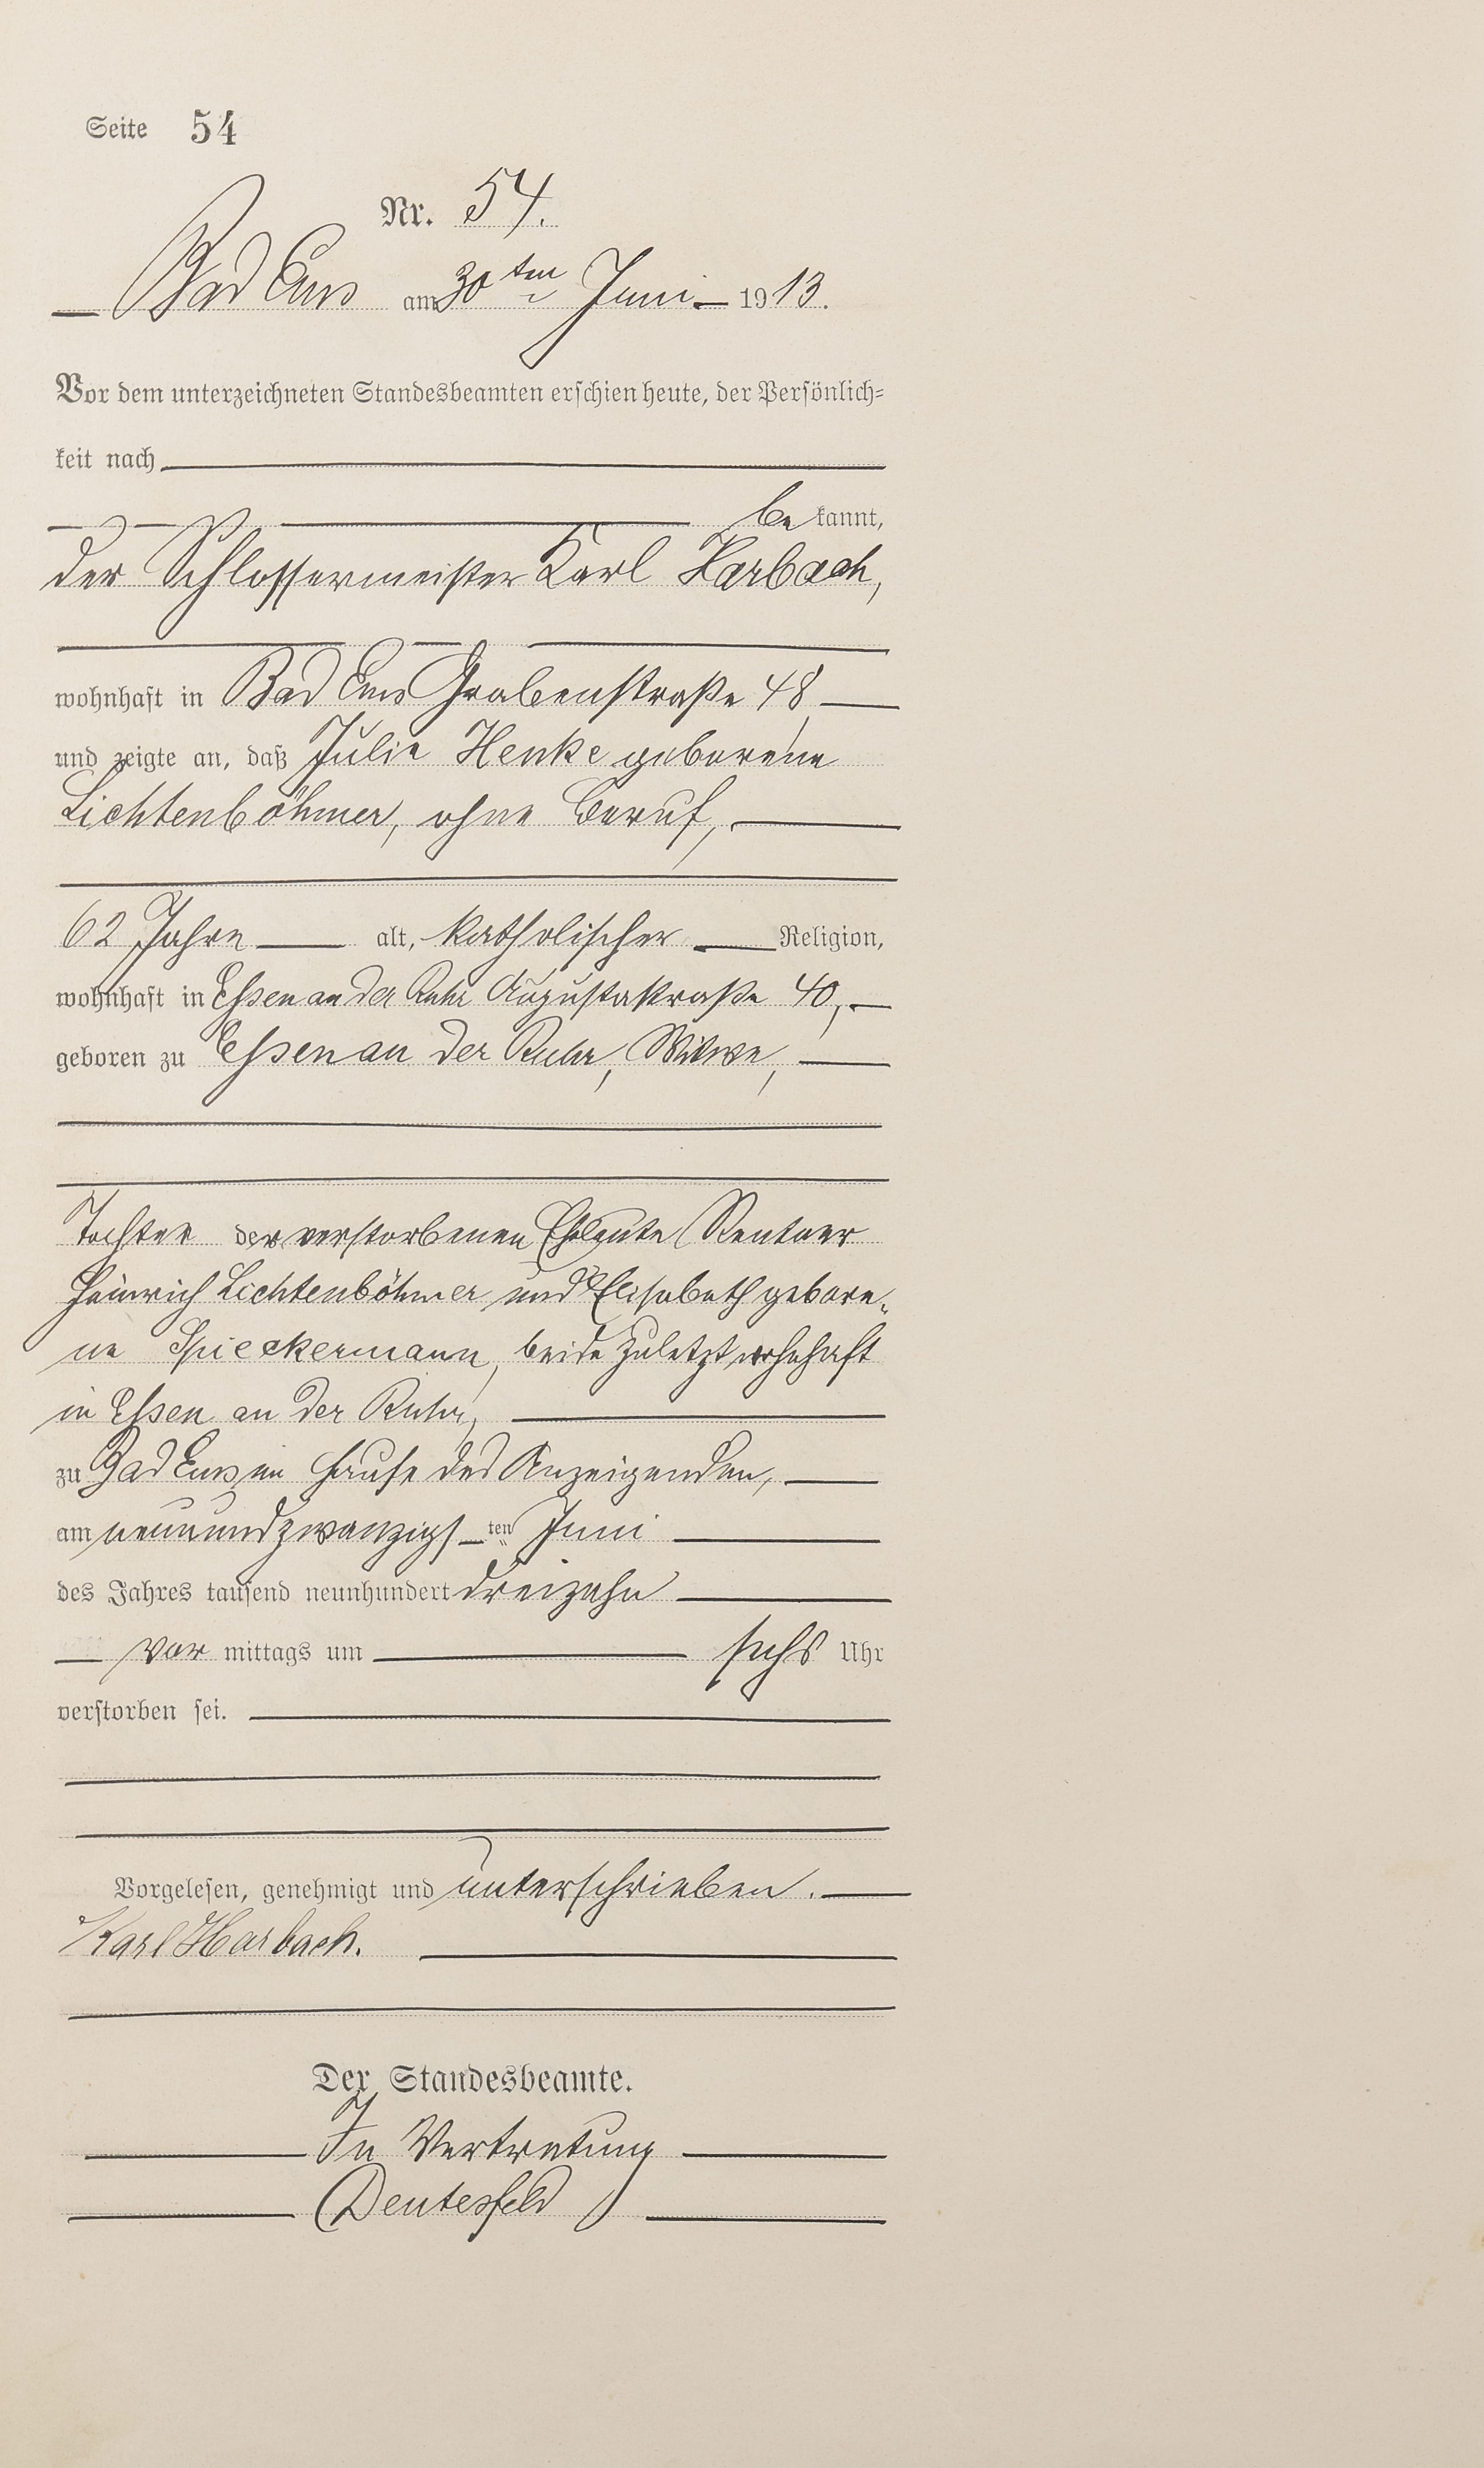 Seite 54
Nr. 54.
Bad Ems am 30ten Juni 1913.
Vor dem unterzeichneten Standesbeamten erschien heute, der Persönlich=
keit nach
be kannt,
der Schlossermeister Karl Harbach,
wohnhaft in Bad Ems Grabenstraße 48
und zeigte an, daß Julie Henke geborene
Lichtenböhmer, ohne Beruf,
62 Jahre alt, katholischer Religion,
wohnhaft in Essen an der Ruhr Augustastraße 40,
geboren zu Essen an der Ruhr, Witwe,
Tochter der verstorbenen Eheleute Rentner
Heinrich Lichtenböhmer und Elisabeth gebore„
ne Spieckermann, beide zuletzt wohnhaft
in Essen an der Ruhr,
zu Bad Ems im Hause des Anzeigenden,
am neunundzwanzigsten Juni
des Jahres tausend neunhundert dreizehn
vor mittags um sechs Uhr
verstorben sei.
Vorgelesen, genehmigt und unterschrieben.
Karl Harbach.
Der Standesbeamte.
In Vertretung
Deutesfeld